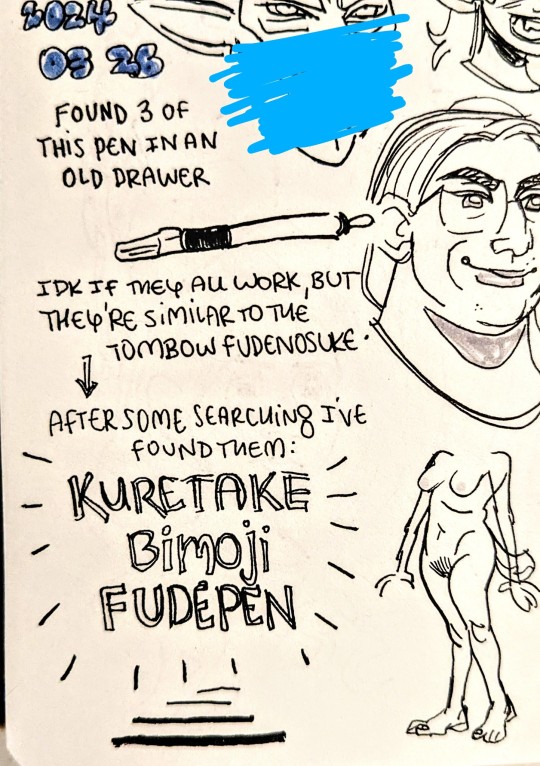 2024
03 26
FOUND 3 OF
THIS PEN IN AN
OLD DRAWER
IDK IF THEY ALL WORK, BUT
THEY'RE SIMILAR TO THE
TOMBOW FUDENOSUKE.
AFTER SOME SEARCHING I'VE
FOUND THEM:
KURETAKE
Bimoji
FUDEPEN